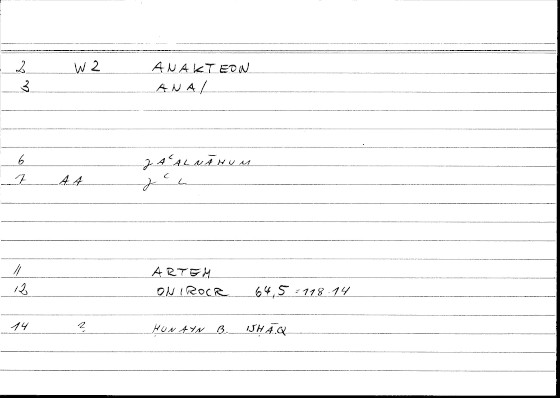 2 W2 ANAKTEON
3 ANA/
6 ǧAʿALNĀHUM
7 AA ǧʿL
11 ARTEM
12 ONIROCR 64,5 = 118.14
14 ? ḤUNAYN B. ISḤĀQ